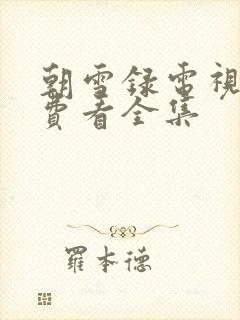 朝雪録電視
費看全集
羅本德